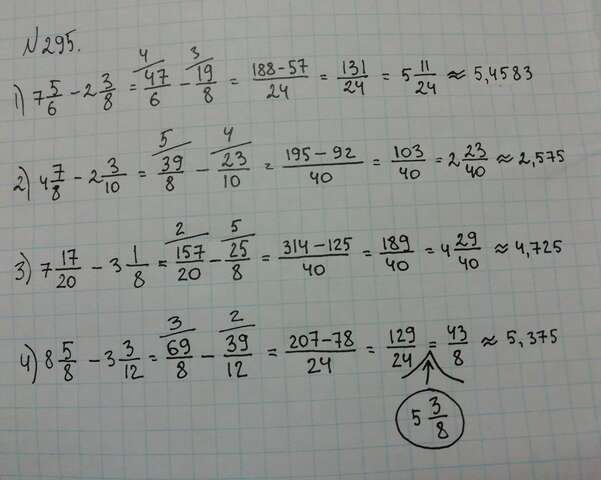 N295.
1) 7 5/6 - 2 3/8 = 47/6 (4 - 19/8 (3 = 188-57/24 = 131/24 = 5 11/24 ≈ 5,4583
2) 4 7/8 - 2 3/10 = 39/8 (5 - 23/10 (4 = 195-92/40 = 103/40 = 2 23/40 ≈ 2,575
3) 7 17/20 - 3 1/8 = 157/20 (2 - 25/8 (5 = 314-125/40 = 189/40 = 4 29/40 ≈ 4,725
4) 8 5/8 - 3 3/12 = 69/8 (3 - 39/12 (2 = 207-78/24 = 129/24 = 43/8 ≈ 5,375
5 3/8